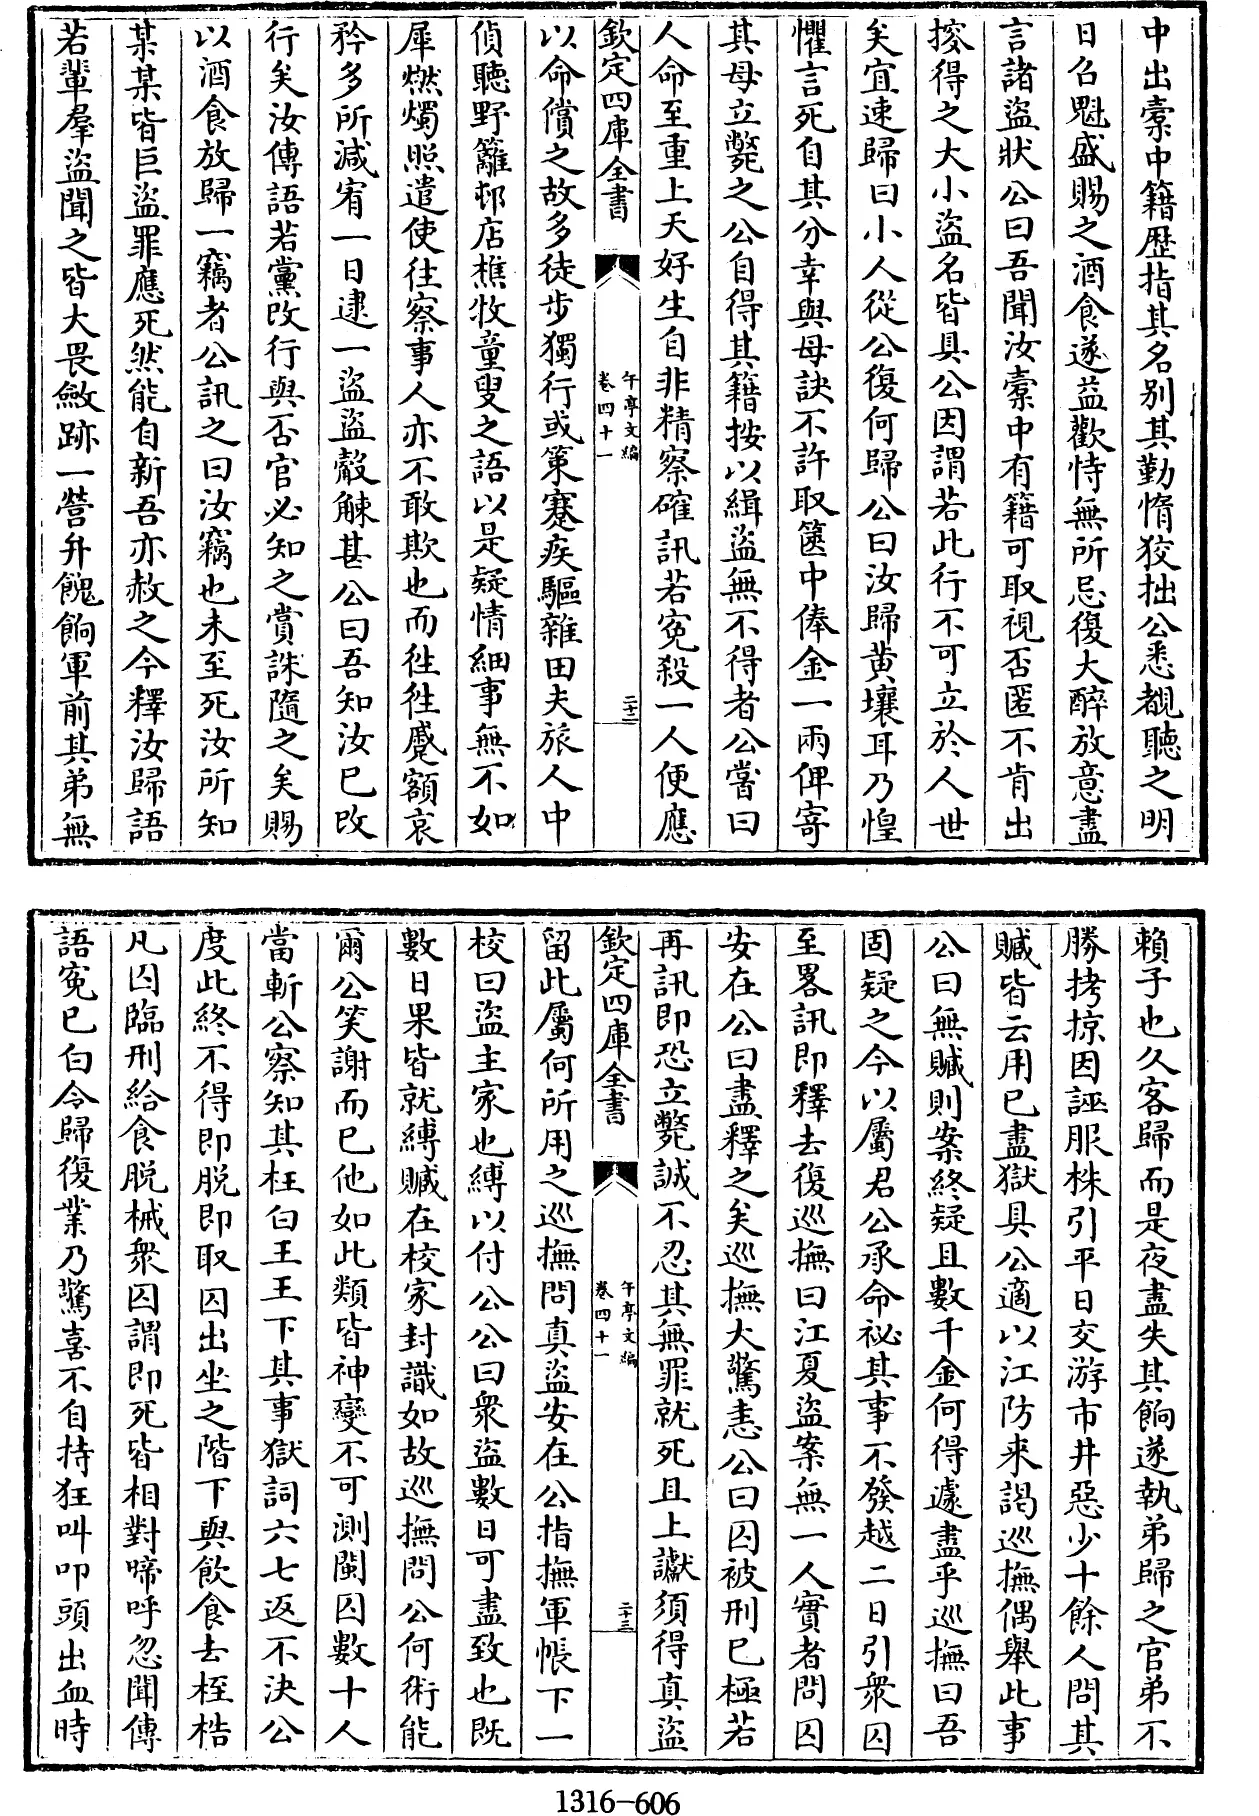 中出橐中籍歴指其名别其勤惰狡拙公悉覩聽之明
日召魁盛賜之酒食遂益歡恃無所忌復大醉放意盡
言諸盜狀公曰吾聞汝橐中有籍可取視否匿不肯出
搜得之大小盜名皆具公因謂若此行不可立於人世
矣宜速歸曰小人從公復何歸公曰汝歸黄壤耳乃惶
懼言死自其分幸與母訣不許取篋中俸金一兩俾寄
其母立斃之公自得其籍按以緝盜無不得者公嘗曰
人命至重上天好生自非精察確訊若寃殺一人便應
欽定四庫全書
午亭文編
卷四十一
二十二
以命償之故多徒步獨行或策蹇疾驅雜田夫旅人中
偵聽野籬邨店樵牧童叟之語以是疑情細事無不如
犀燃燭照遣使往察事人亦不敢欺也而徃徃蹙額哀
矜多所減宥一日逮一盜盜觳觫甚公曰吾知汝已改
行矣汝傳語若黨改行與否官必知之賞誅隨之矣賜
以酒食放歸一竊者公訊之曰汝竊也未至死汝所知
某某皆巨盜罪應死然能自新吾亦赦之今釋汝歸語
若輩羣盜聞之皆大畏斂跡一營弁餽餉軍前其弟無
賴子也久客歸而是夜盡失其餉遂執弟歸之官弟不
勝拷掠因誣服株引平日交游市井惡少十餘人問其
贓皆云用已盡獄具公適以江防来謁巡撫偶舉此事
公曰無贓則案終疑且數千金何得遽盡乎巡撫曰吾
固疑之今以屬君公承命祕其事不發越二日引衆囚
至畧訊即釋去復巡撫曰江夏盜案無一人實者問囚
安在公曰盡釋之矣巡撫大驚恚公曰囚被刑已極若
再訊即恐立斃誠不忍其無罪就死且上讞須得真盜
欽定四庫全書
午亭文編
卷四十一
二十三
留此屬何所用之巡撫問真盜安在公指撫軍帳下一
校曰盜主家也縛以付公公曰衆盜數日可盡致也既
數日果皆就縛贓在校家封識如故巡撫問公何術能
爾公笑謝而已他如此類皆神變不可測閩囚數十人
當斬公察知其枉白王王下其事獄詞六七返不決公
度此終不得即脱即取囚出坐之階下與飲食去桎梏
凡囚臨刑給食脱械衆囚謂即死皆相對啼呼忽聞傳
語寃已白令歸復業乃驚喜不自持狂叫叩頭出血時
1316-606